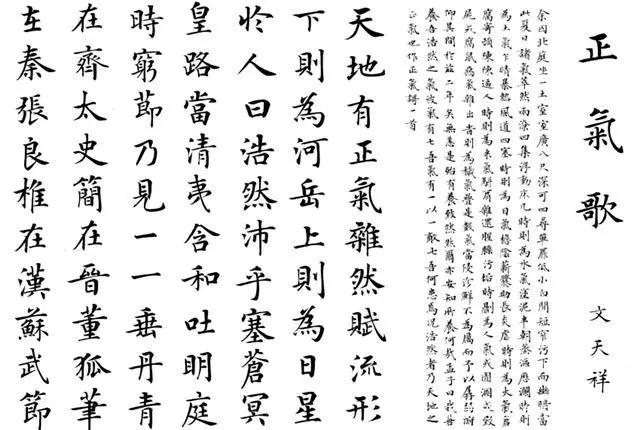 正氣歌
文天祥
余囚北庭坐一土室室廣八尺深可四尋單扉低小白間短窄污下而幽暗當
此夏日諸氣萃然雨潦四集浮動床几時則為水氣塗泥半朝蒸漚歷瀾時則
為土氣乍晴暴熱風道四塞時則為日氣檐陰薪爨助長炎虐時則為火氣倉
腐寄頓陳陳逼人時則為米氣駢肩雜遝腥臊污垢時則為人氣或圊溷或毀
屍或腐鼠惡氣雜出時則為穢氣疊是數氣當侵沴鮮不為厲而予以孱弱俯
仰其間於茲二年矣無恙是殆有養致然爾亦安知所養何哉孟子曰我善
養吾浩然之氣彼氣有七吾氣有一以一敵七吾何患焉況浩然者乃天地之
正氣也作正氣謌一首
天地有正氣雜然賦流形
下則為河岳上則為日星
於人曰浩然沛乎塞蒼冥
皇路當清夷含和吐明庭
時窮節乃見一一垂丹青
在齊太史簡在晉董狐筆
在秦張良椎在漢蘇武節